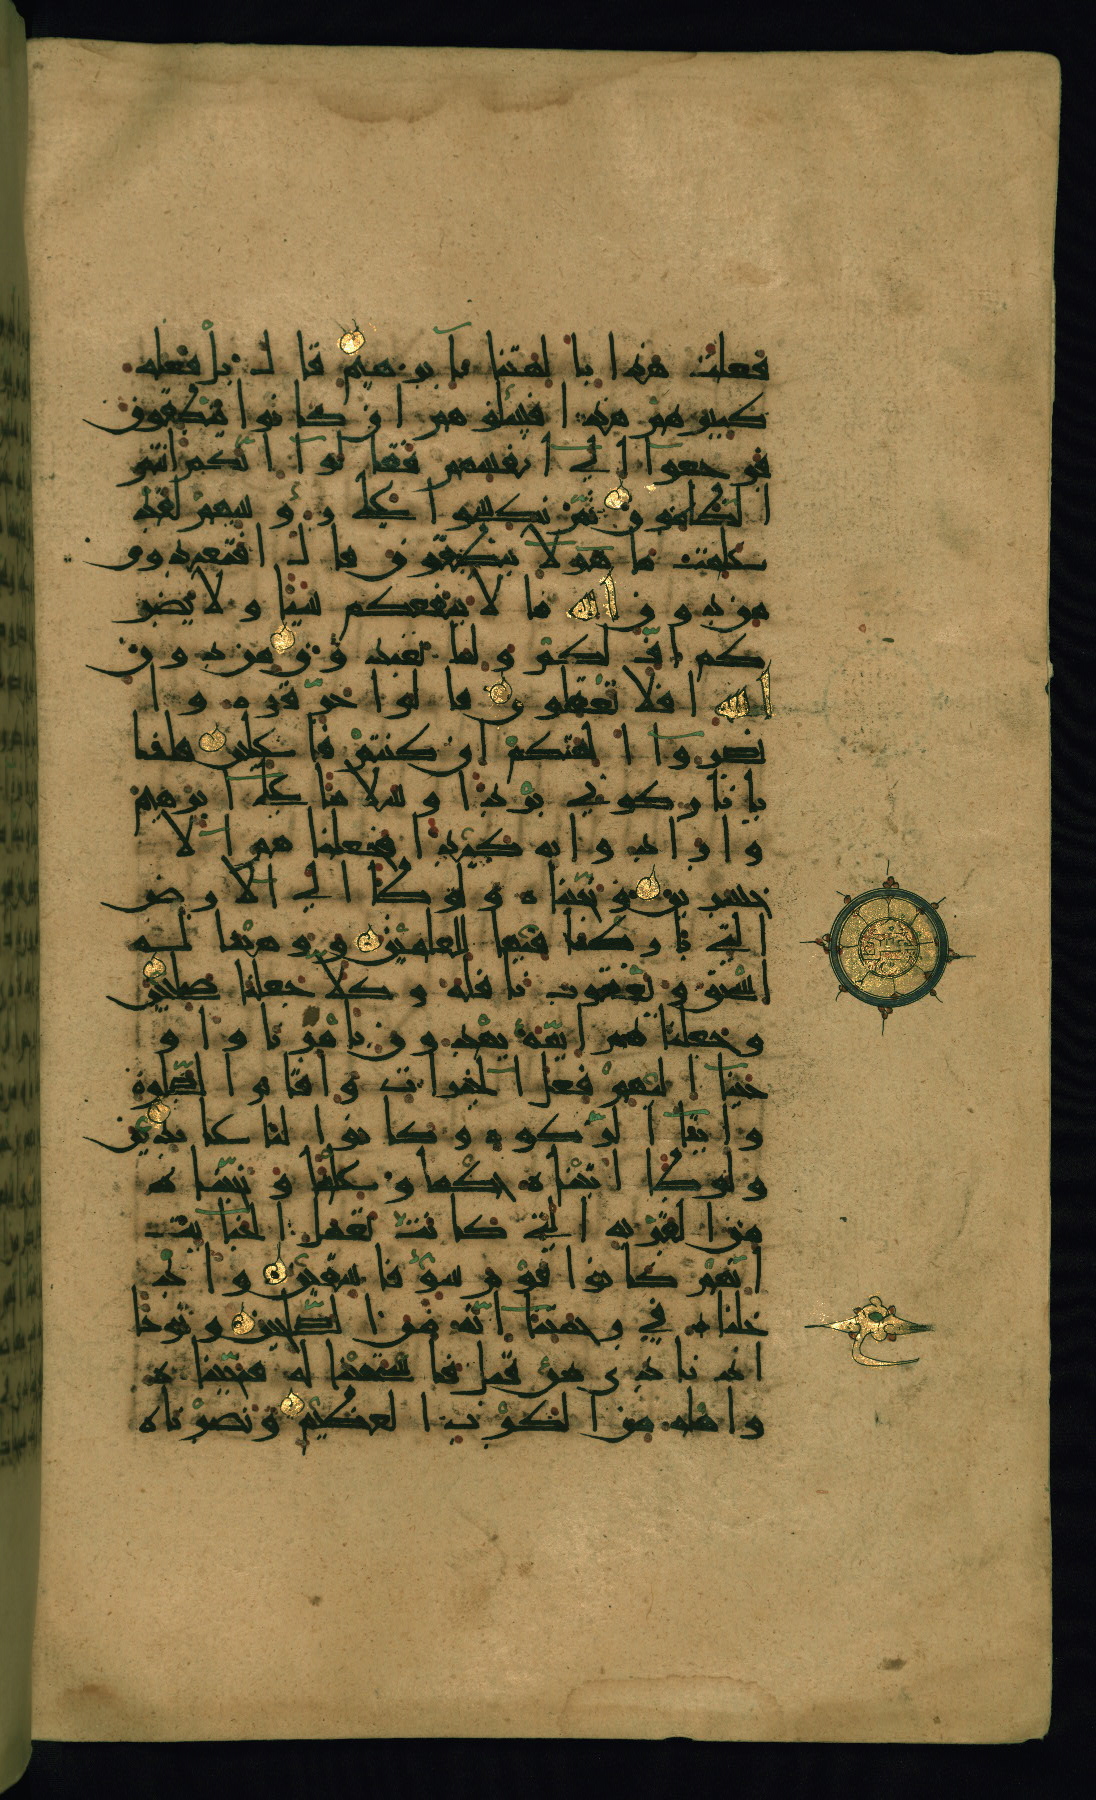 فعلت هذا بالهتنا يابرهيم قال بل فعله
كبيرهم هذا فسئلوهم ان كانوا ينطقون
فرجعوا الى انفسهم فقالوا انكم انتم
الظالمون ثم نكسوا على رؤسهم لقد
علمت ما هولاء ينطقون قال افتعبدون
من دون الله ما لا ينفعكم شيئا ولا يضر
كم اف لكم ولما تعبدون من دون
الله افلا تعقلون قالوا حرقوه وا
نصروا الهتكم ان كنتم فاعلين قلنا
يا نار كوني بردا وسلاما على ابرهيم
وارادوا به كيدا فجعلناهم الا
خسرين ونجيناه ولوطا الى الارض
التي باركنا فيها للعلمين ووهبنا له
اسحق ويعقوب نافلة وكلا جعلنا صلحين
وجعلناهم ائمة يهدون بامرنا واو
حينا اليهم فعل الخيرات واقام الصلوة
وايتاء الزكوة وكانوا لنا عابدين
ولوطا اتيناه حكما وعلما ونجيناه
من القرية التي كانت تعمل الخبائث
انهم كانوا قوم سوء فاسقين واد
خلناه في رحمتنا انه من الصلحين ونوحا
اذ نادى من قبل فاستجبنا له فنجيناه
واهله من الكرب العظيم ونصرناه